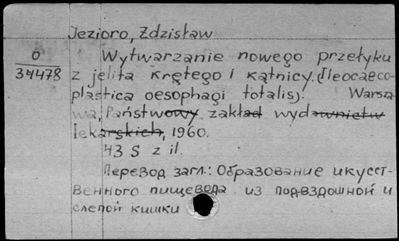 Jezioro, Zdzisław
0
34478
Wytwarzanie nowego przełyku
z jelita krętego i kątnicy. (Ileocaeco-
plastica oesophagi totalis). Warsza
wa, Państwowy zakład wydawnictw
lekarskich, 1960.
43 S z il.
Перевод загл.: Образование икусст-
венного пищевода из подвздошной и
слепой кишки